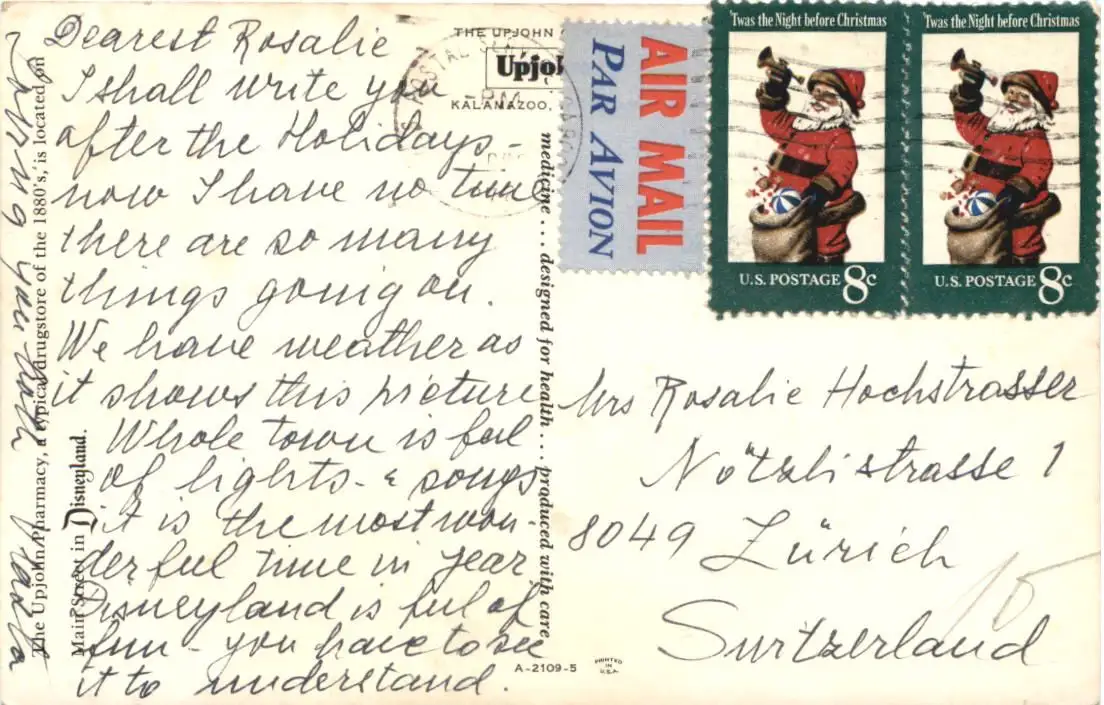 Dearest Rosalie
I shall write you
after the Holidays -
now I have no time
there are so many
things going on.
We have weather as
it shows this picture
Whole town is ful
of lights - & songs
it is the most won-
derful time in year
Disneyland is ful of
fun - you have to see
it to understand.
The Upjohn Pharmacy, a typical drugstore of the 1880's, is located on
Main Street in Disneyland.
THE UPJOHN
Upjoh
KALAMAZOO,
medicine ... designed for health ... produced with care
A-2109-5
PRINTED
IN
U.S.A.
AIR MAIL
PAR AVION
'Twas the Night before Christmas
U.S. POSTAGE 8c
'Twas the Night before Christmas
U.S. POSTAGE 8c
Mrs Rosalie Hochstrasser
Nötzlistrasse 1
8049 Zürich
Switzerland